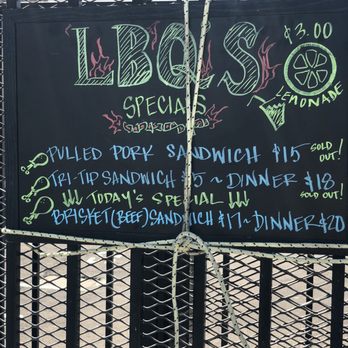 LBQ'S
$3.00
LEMONADE
SPECIALS
PULLED PORK SANDWICH $15 SOLD OUT!
TRI-TIP SANDWICH ~ DINNER $18 SOLD OUT!
TODAY'S SPECIAL
BRISKET (BEEF) SANDWICH $17 ~ DINNER $20